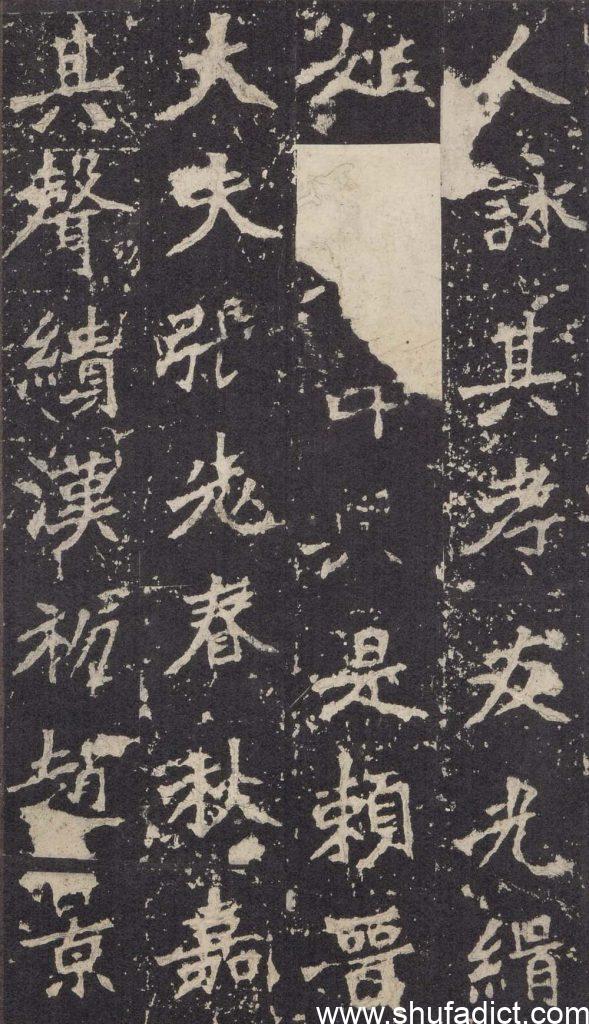 人詠其孝友光緝
姬是賴晉
大夫張老春秋嘉
其聲績漢初趙景
www.shufadict.com